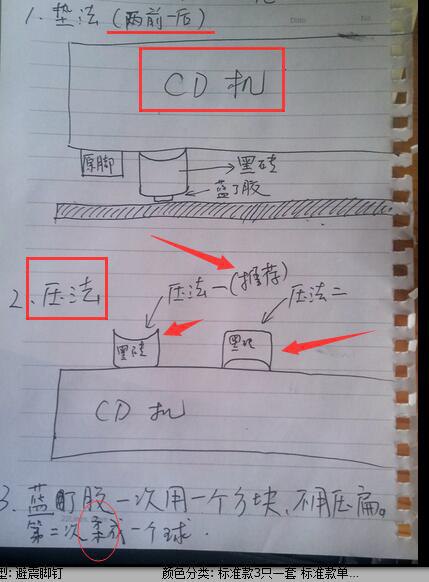 1、垫法(两前一后)
CD机
原脚
黑砖
蓝丁胶
2、压法
压法一(推荐)
压法二
黑砖
黑砖
CD机
3、蓝町胶一次用一个方块、不用压扁。
第二次柔成一个球.
型: 避震脚钉
颜色分类: 标准款3只一套 标准款单...